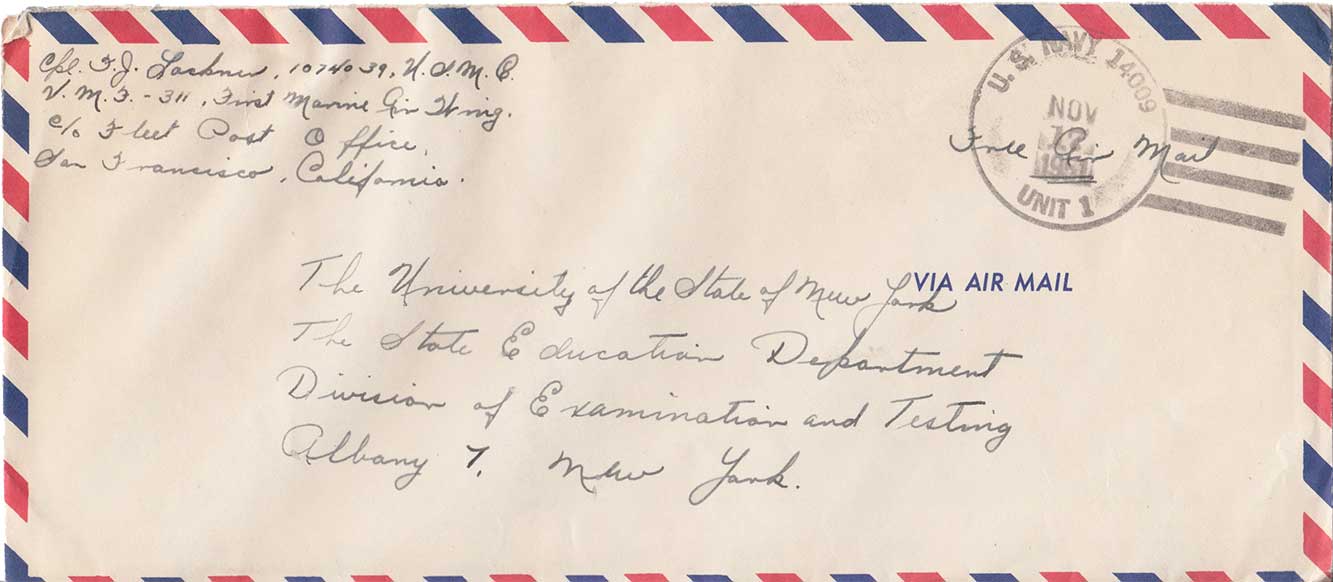 Cpl. F. J. Lockner, 1074039, U.S.M.C.
V.M.F. - 311, First Marine Air Wing.
c/o Fleet Post Office,
San Francisco, California.
U.S. NAVY 14009
NOV
1951
UNIT 1
Free Air Mail
VIA AIR MAIL
The University of the State of New York
The State Education Department
Division of Examination and Testing
Albany 7, New York.